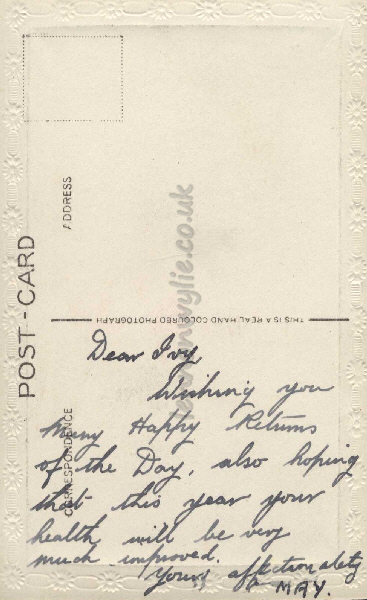 POST-CARD
ADDRESS
CORRESPONDENCE
THIS IS A REAL HAND COLOURED PHOTOGRAPH
Dear Ivy,
Wishing you
Many Happy Returns
of the Day, also hoping
that this year your
health will be very
much improved.
Yours affectionately
MAY.